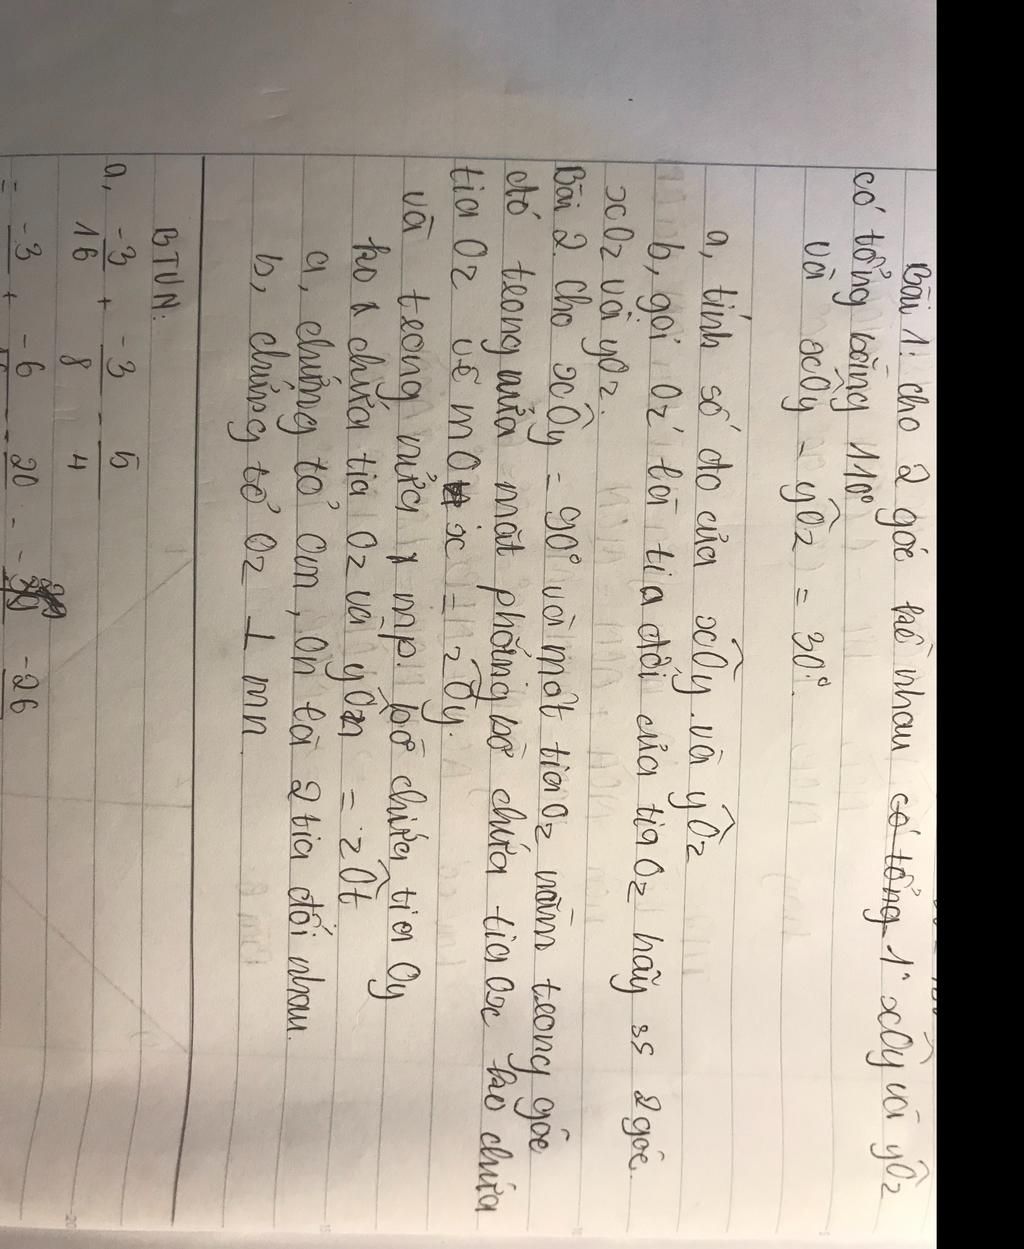 Bài 1: cho 2 góc kề nhau có tổng 1 xÔy và yÔz
có tổng bằng 110°
và xÔy - yÔz = 30°.
a, tính số đo của xÔy và yÔz
b, gọi Oz' là tia đối của tia Oz hãy ss 2 góc
xOz và yOz.
Bài 2. cho xÔy = 90° và một tia Oz nằm trong góc
đó trong nửa mặt phẳng bờ chứa tia Ox ko chứa
tia Oz vẽ mO x = zÔy.
và trong nửa mp. bờ chứa tia Oy
ko chứa tia Oz và yÔn = zÔt
a, chứng tỏ Om, On là 2 tia đối nhau.
b, chứng tỏ Oz ⊥ mn.
BTVN:
a, -3/16 + -3/8 - 5/4
= -3 + -6 - 20 = -26